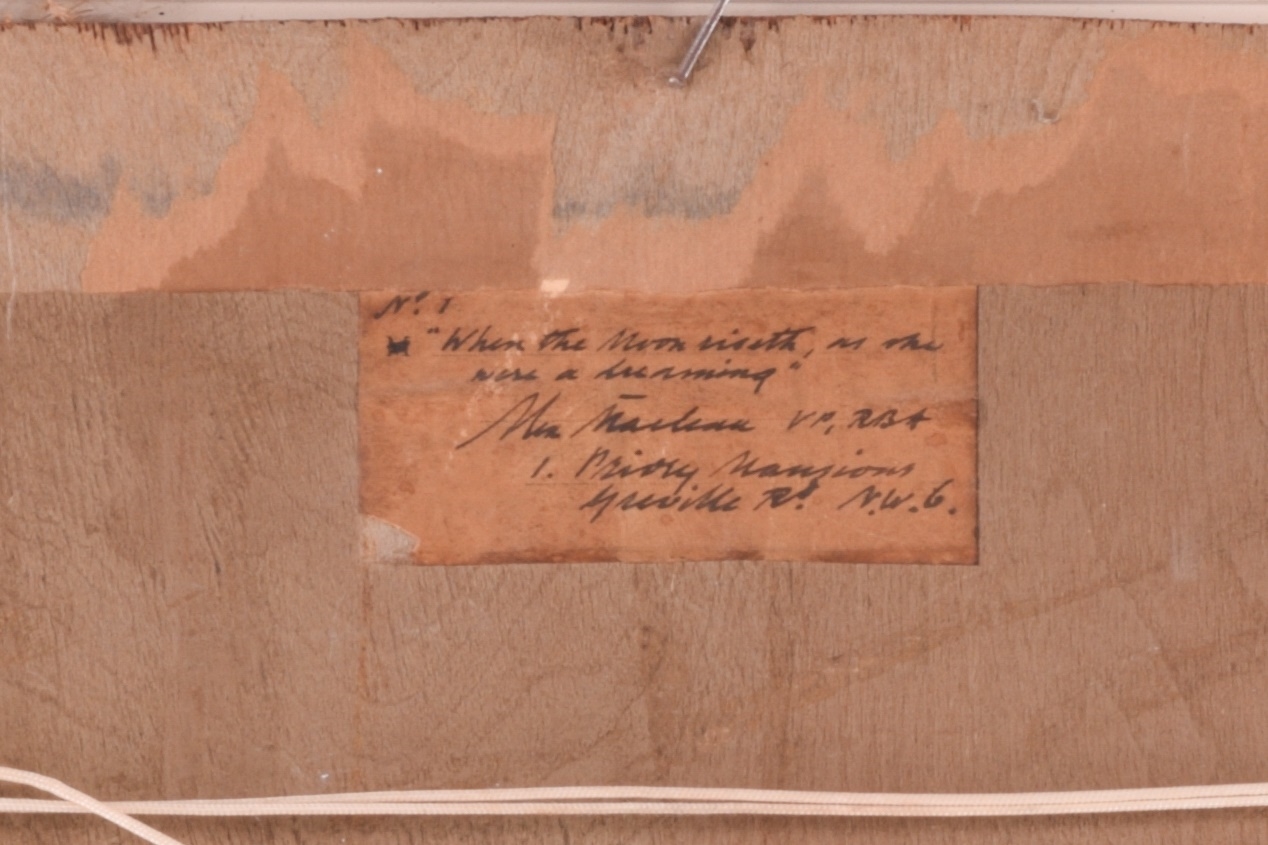 Nº 1
"When the Moon riseth, as she
were a dreaming"
Alex Maclean VP, RBA
1. Priory Mansions
Greville Rd. N.W.6.